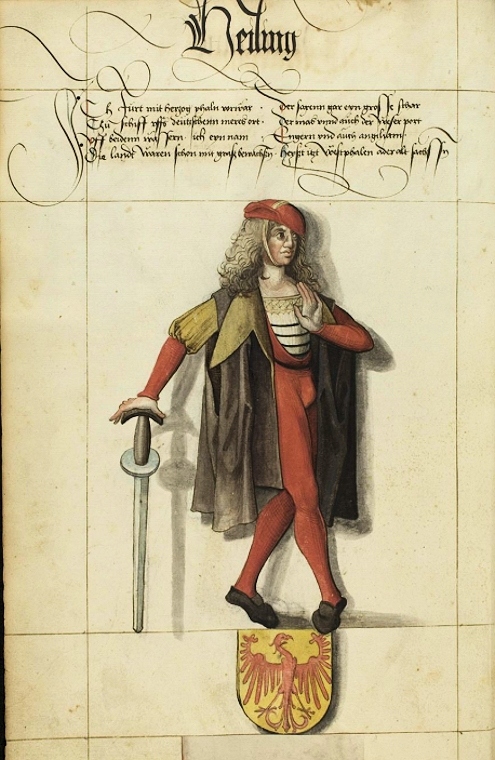 Heilung
Ich fürt mit herzog phaln vorwar · Der sarenn gar eyn grosse schar
Thu schiff uff deutschenn meres ort · Der mas vnnd auch der weser port
Off beidenn wassern · sich eyn nam · Engern vnd auch
Die landt waren schon mit · heyst itzt Westphalen ader alt sachssn